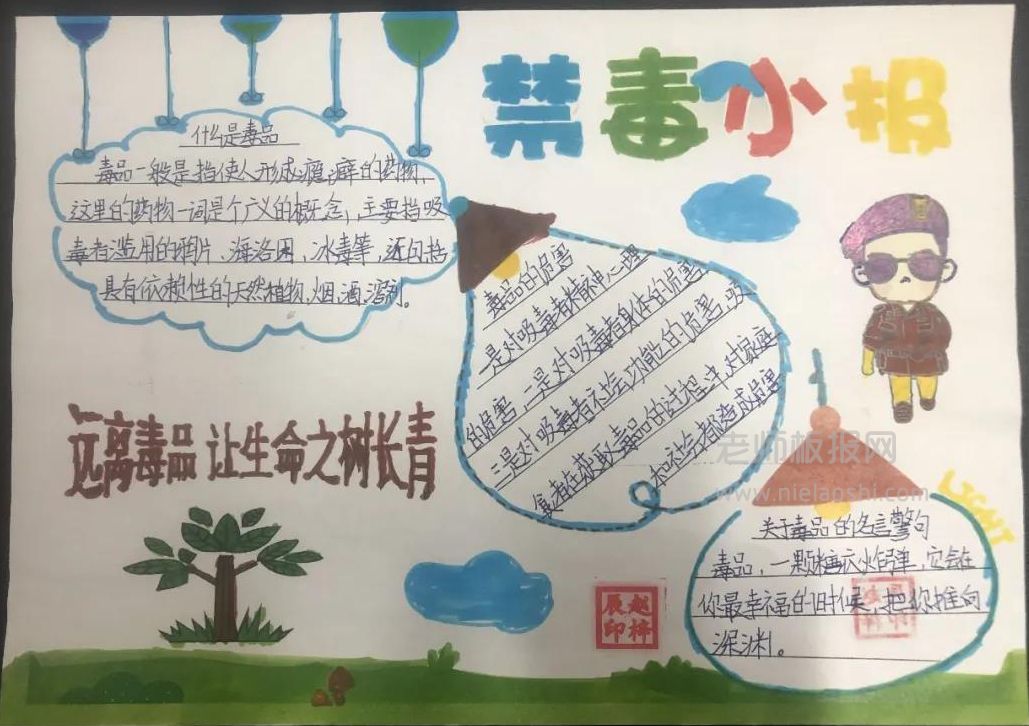 禁毒小报
什么是毒品
毒品一般是指使人形成瘾癖的药物，
这里的药物一词是个广义的概念，主要指吸
毒者滥用的鸦片、海洛因、冰毒等，还包括
具有依赖性的天然植物、烟、酒、溶剂。
毒品的危害
一是对吸毒者精神心理
的危害，二是对吸毒者身体的危害，
三是对吸毒者社会功能的危害，吸
食者在获取毒品的过程中，对家庭
和社会都造成危害
远离毒品 让生命之树长青
老师板报网
www.nielaoshi.com
LIGHT
关于毒品的名言警句
毒品，一颗糖衣炮弹，它会在
你最幸福的时候，把你推向
深渊。
赵梓
辰印